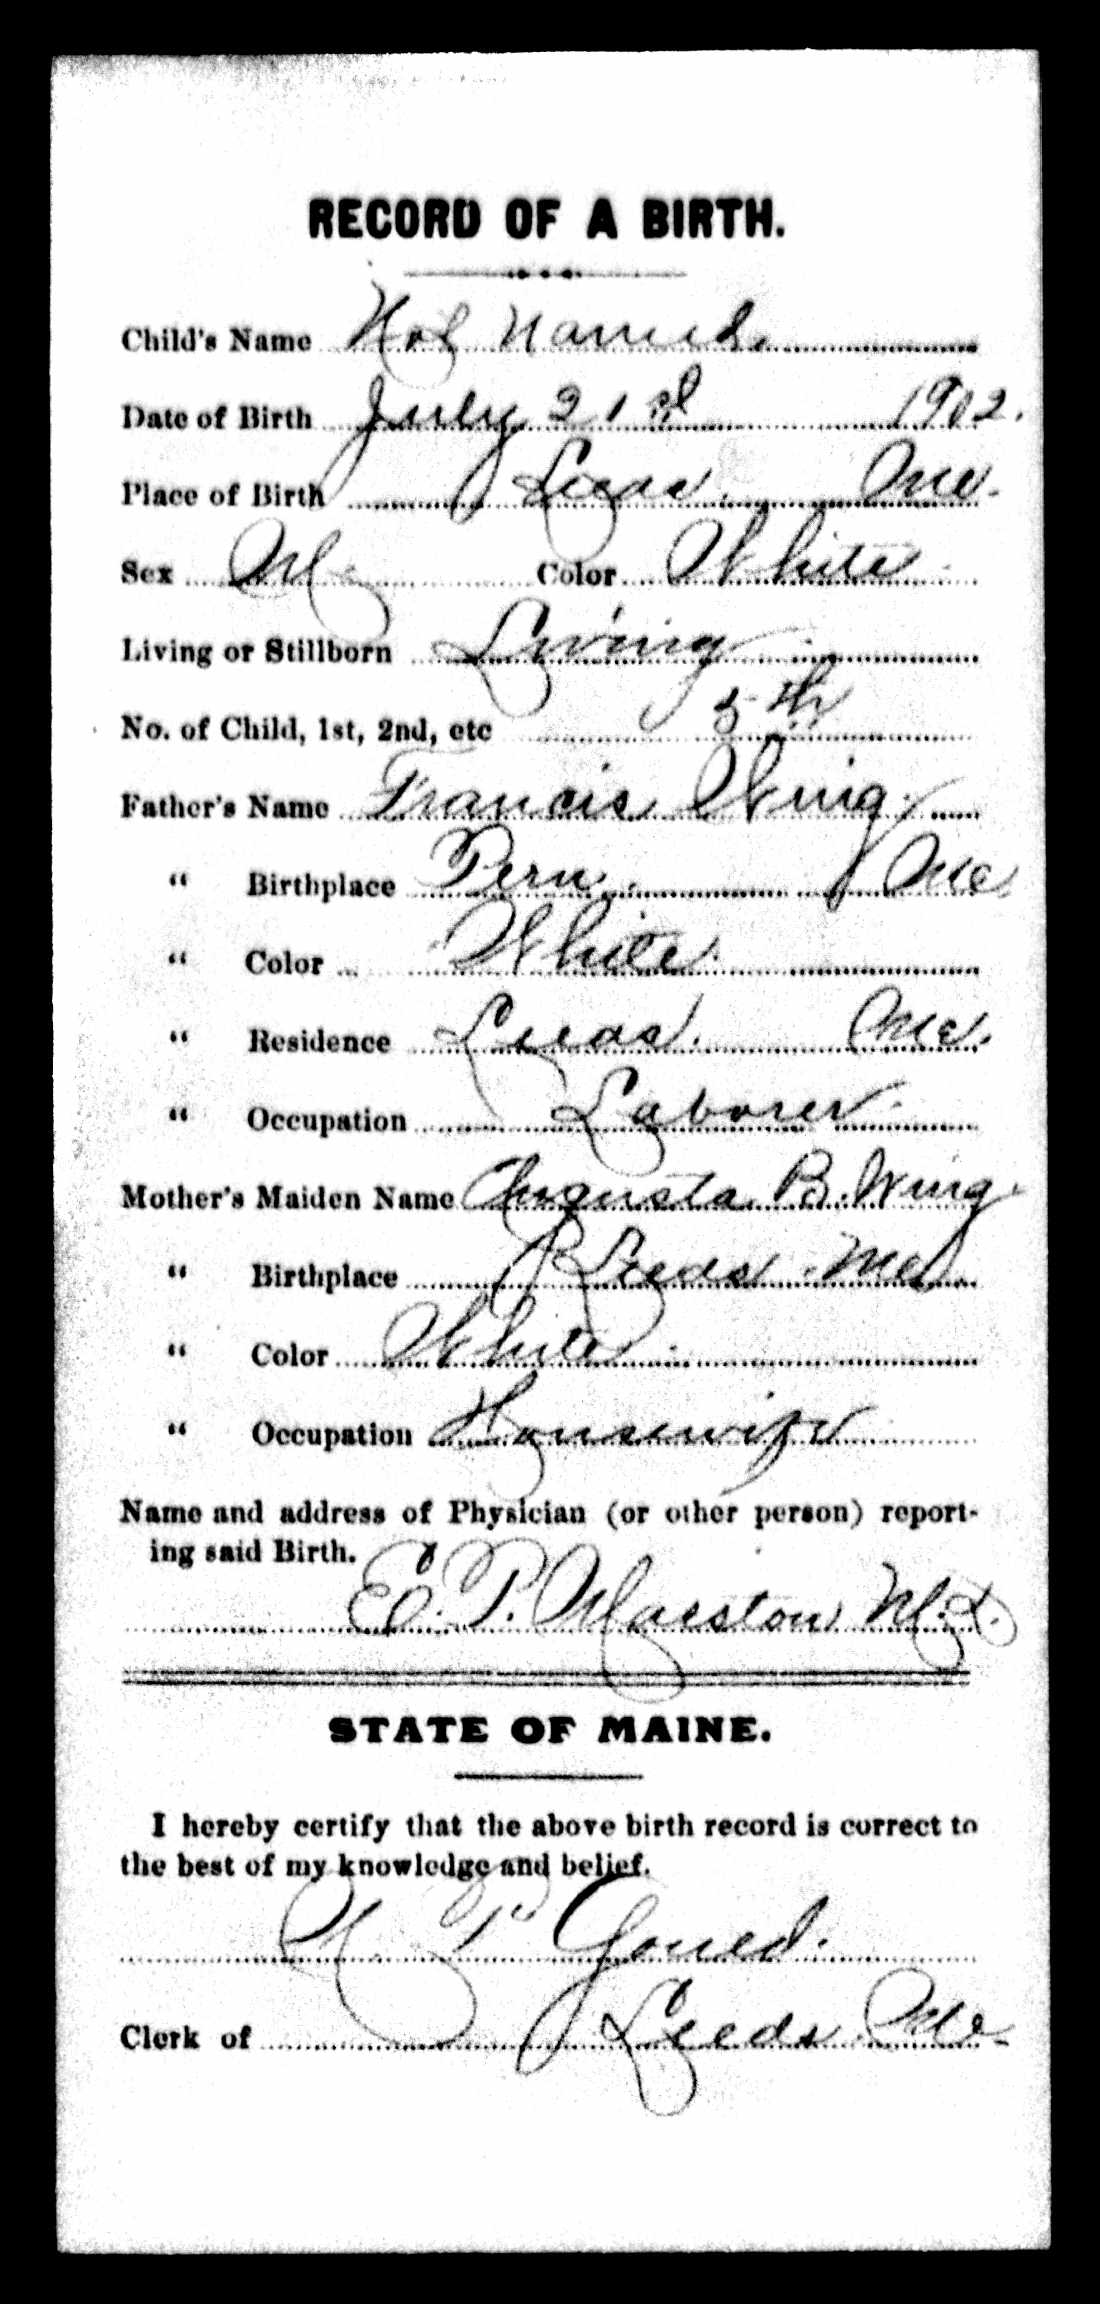 RECORD OF A BIRTH.
Child's Name Not Named.
Date of Birth July 21st 1902.
Place of Birth Leeds. Me.
Sex M. Color White
Living or Stillborn Living
No. of Child, 1st, 2nd, etc 5th
Father's Name Francis Wing.
" Birthplace Peru. Me
" Color White.
" Residence Leeds. Me.
" Occupation Laborer.
Mother's Maiden Name Augusta B. Wing.
" Birthplace Leeds. Me
" Color White.
" Occupation Housewife
Name and address of Physician (or other person) report-
ing said Birth.
E. P. Marston M.D.
STATE OF MAINE.
I hereby certify that the above birth record is correct to
the best of my knowledge and belief.
Gould.
Clerk of Leeds. Me.